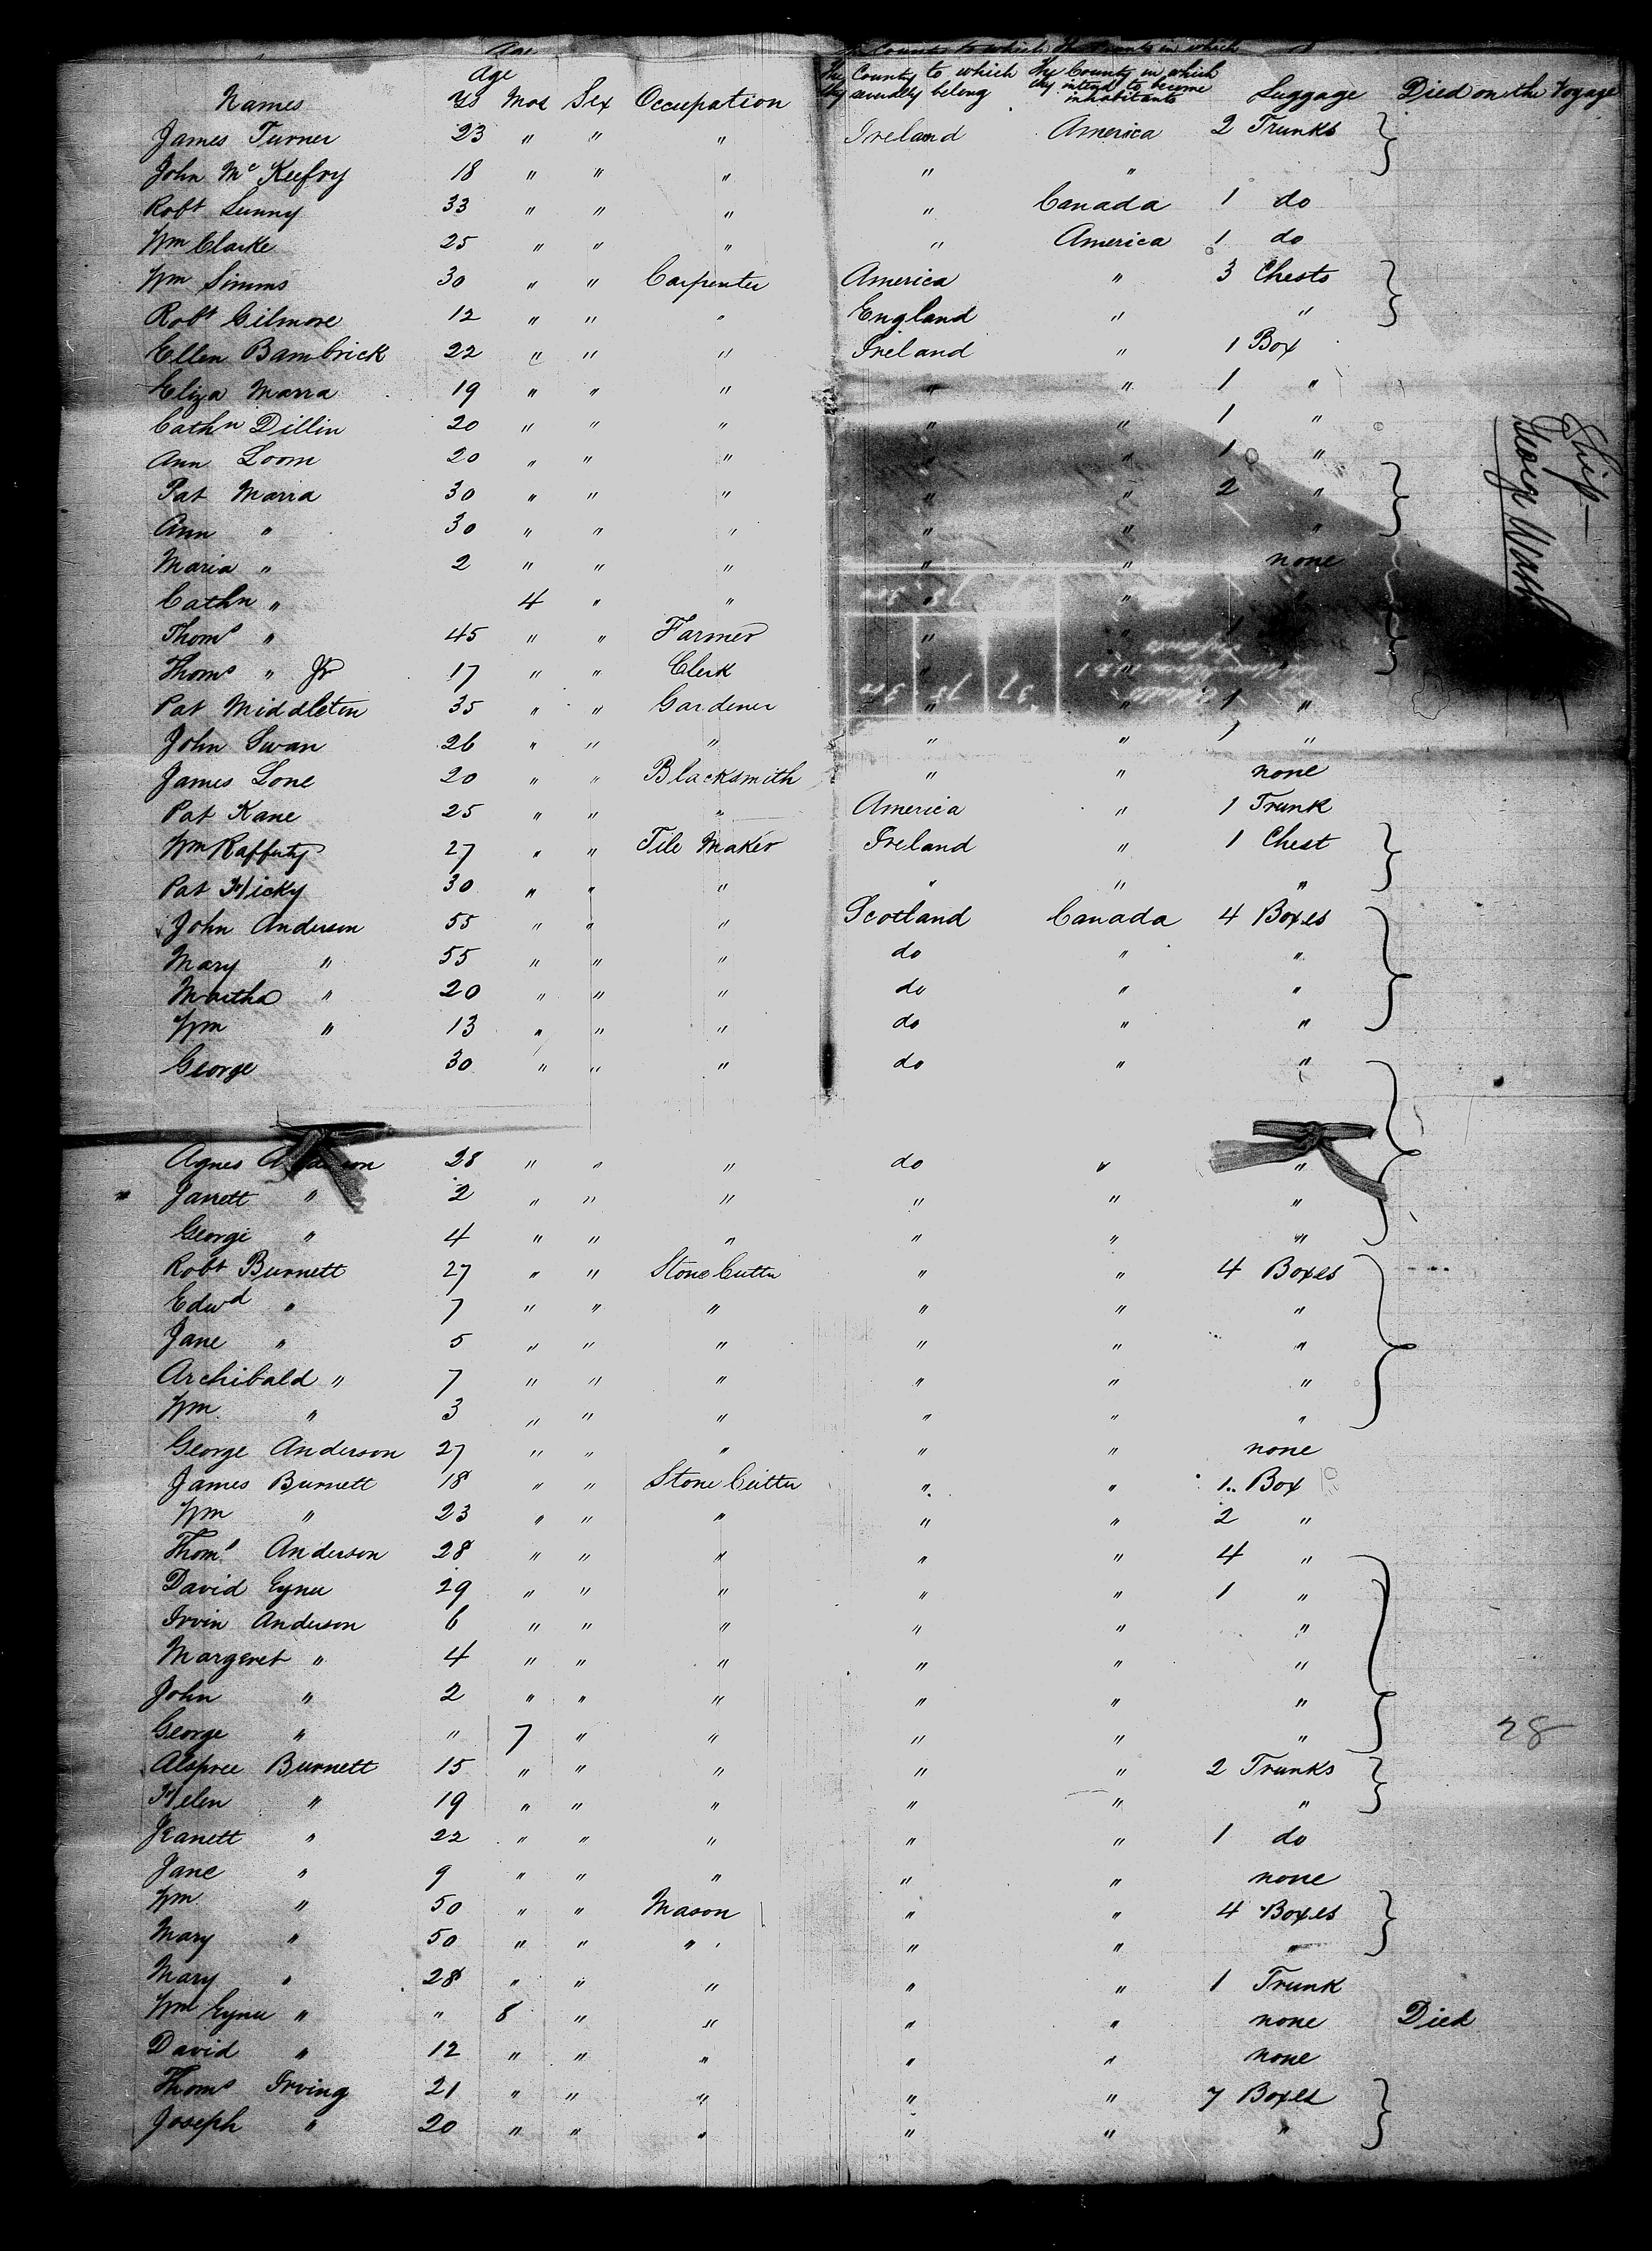 Age
Names Ys Mos Sex Occupation The County to which they severally belong The County in which they intend to become inhabitants Luggage Died on the Voyage
James Turner 23 " " " Ireland America 2 Trunks
John Mc Keefry 18 " " " " "
Robt Lunny 33 " " " " Canada 1 do
Wm Clarke 25 " " " " America 1 do
Wm Simms 30 " " Carpenter America " 3 Chests
Robt Gilmore 12 " " " England " "
Ellen Bambrick 22 " " " Ireland " 1 Box
Eliza Marra 19 " " " " " 1 "
Cathn Dillin 20 " " " " " 1 "
Ann Loom 20 " " " " " 1 "
Pat Marra 30 " " " " " 2 "
Ann " 30 " " " " " "
Maria " 2 " " " " " none
Cathn " 4 " " " " "
Thoms " 45 " " Farmer " " 1
Thoms " Jr 17 " " Clerk " "
Pat Middleton 35 " " Gardener " " 1 "
John Swan 26 " " " " " 1 "
James Lone 20 " " Blacksmith " " none
Pat Kane 25 " " " America " 1 Trunk
Wm Rafferty 27 " " Tile Maker Ireland " 1 Chest
Pat Hicky 30 " " " " " "
John Anderson 55 " " " Scotland Canada 4 Boxes
Mary " 55 " " " do " "
Martha " 20 " " " do " "
Wm " 13 " " " do " "
George 30 " " " do " "
Agnes Anderson 28 " " " do " "
Janett " 2 " " " " " "
George " 4 " " " " " "
Robt Burnett 27 " " Stone Cutter " " 4 Boxes
Edwd " 7 " " " " " "
Jane " 5 " " " " " "
Archibald " 7 " " " " " "
Wm " 3 " " " " " "
George Anderson 27 " " " " " none
James Burnett 18 " " Stone Cutter " " 1 Box
Wm " 23 " " " " " 2 "
Thoms Anderson 28 " " " " " 4 "
David Eynu 29 " " " " " 1 "
Irvin Anderson 6 " " " " " "
Margeret " 4 " " " " " "
John " 2 " " " " " "
George " " 7 " " " " "
Alspree Burnett 15 " " " " " 2 Trunks
Helen " 19 " " " " " "
Jeanett " 22 " " " " " 1 do
Jane " 9 " " " " " none
Wm " 50 " " Mason " " 4 Boxes
Mary " 50 " " " " " "
Mary " 28 " " " " " 1 Trunk
Wm Eynu " " 8 " " " " none Died
David " 12 " " " " " none
Thoms Irving 21 " " " " " 7 Boxes
Joseph " 20 " " " " " "
Ship—
George Wash
28